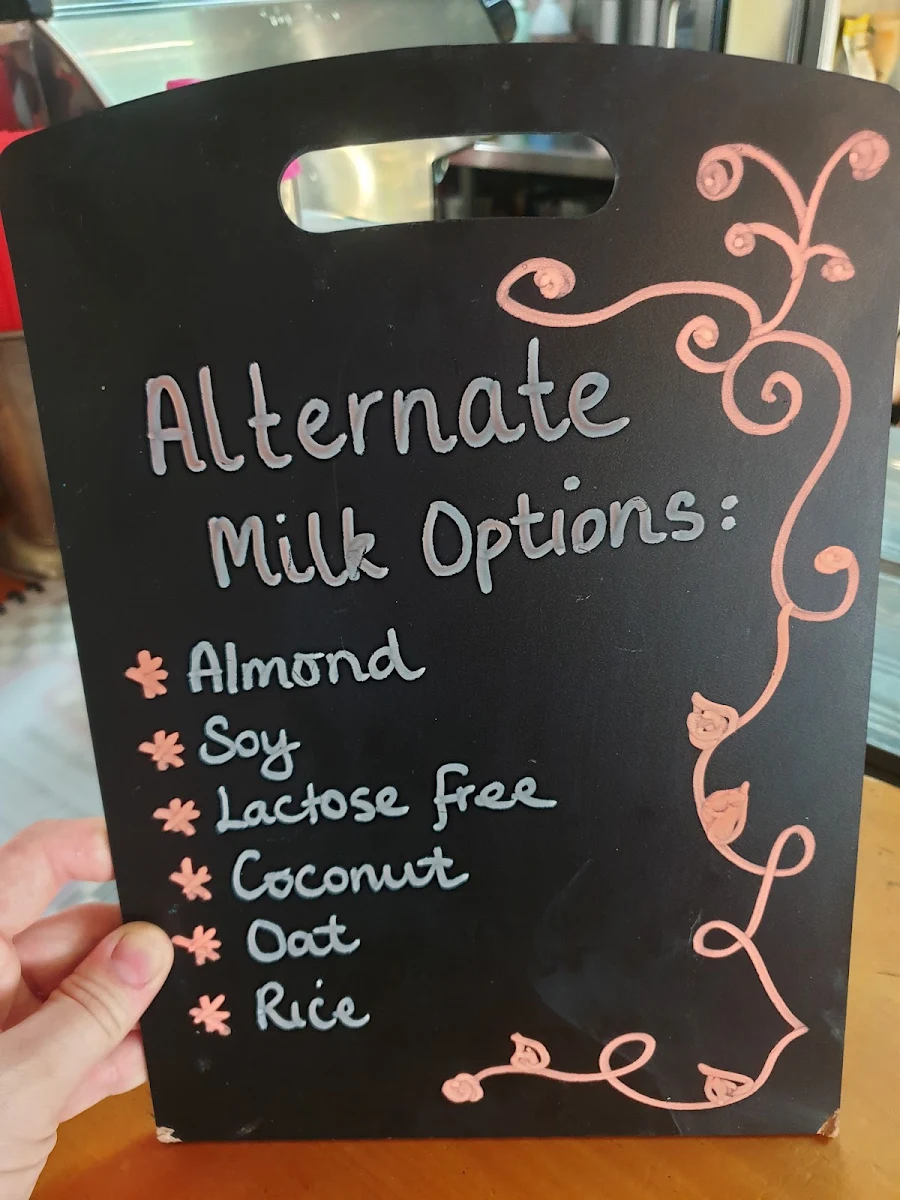 Alternate
Milk Options:
* Almond
* Soy
* Lactose free
* Coconut
* Oat
* Rice